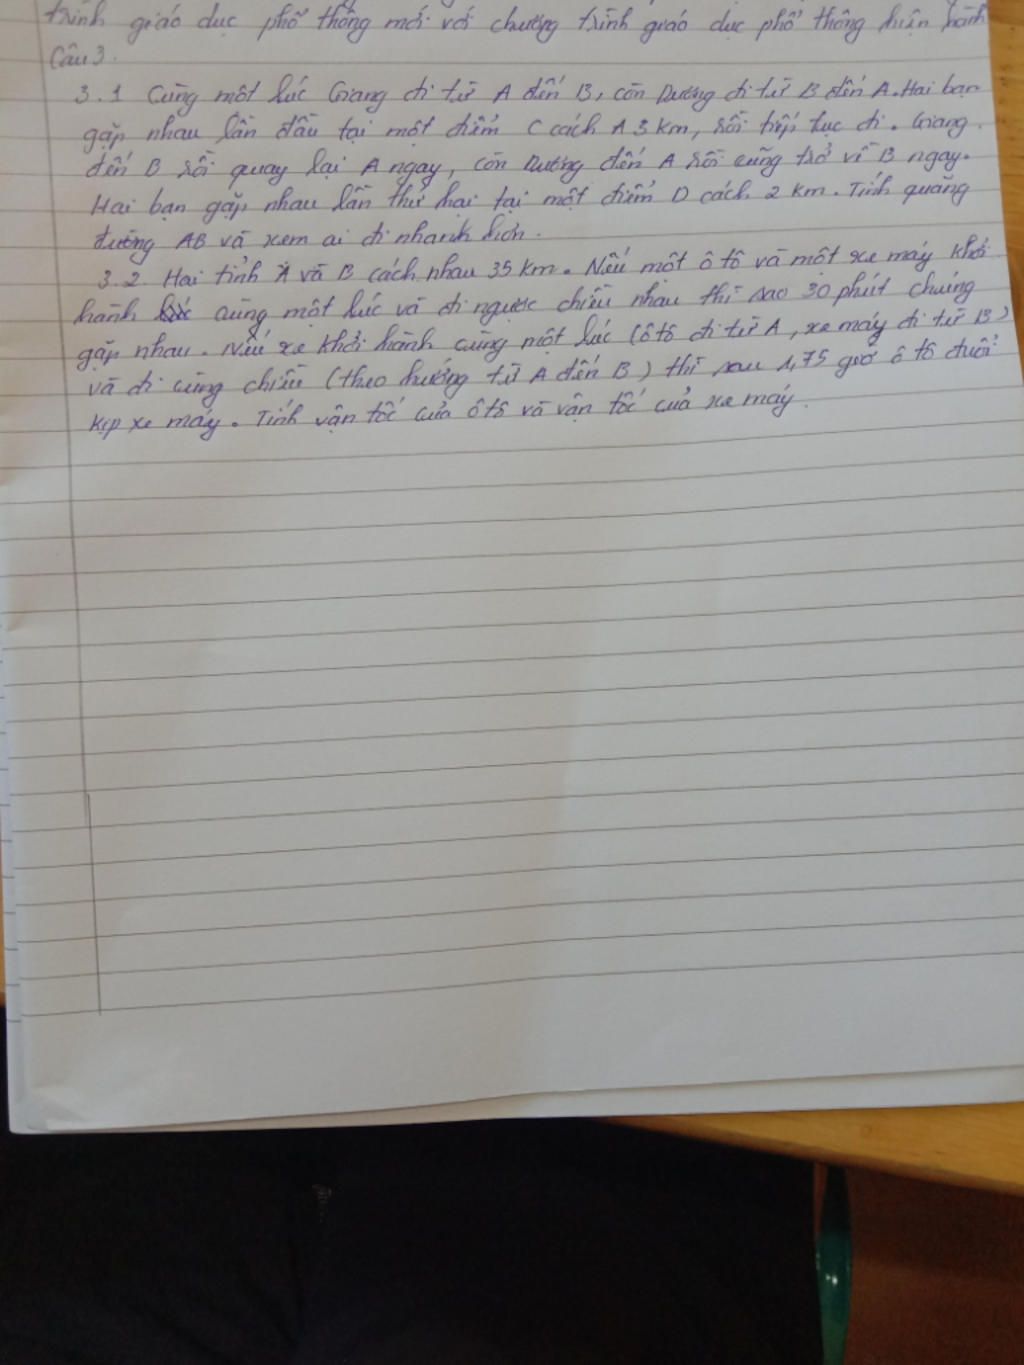 trình giáo dục phổ thông mới với chương trình giáo dục phổ thông hiện hành
Câu 3.
3.1 Cùng một lúc Giang đi từ A đến B, còn Dương đi từ B đến A. Hai bạn
gặp nhau lần đầu tại một điểm C cách A 3 km, rồi tiếp tục đi. Giang
đến B rồi quay lại A ngay, còn Dương đến A rồi cũng trở về B ngay.
Hai bạn gặp nhau lần thứ hai tại một điểm D cách 2 km. Tính quãng
đường AB và xem ai đi nhanh hơn.
3.2. Hai tỉnh A và B cách nhau 35 km. Nếu một ô tô và một xe máy khởi
hành cùng một lúc và đi ngược chiều nhau thì sao 30 phút chúng
gặp nhau. Nếu xe khởi hành cùng một lúc (ô tô đi từ A, xe máy đi từ B)
và đi cùng chiều (theo hướng từ A đến B) thì sau 1,75 giờ ô tô đuổi
kịp xe máy. Tính vận tốc của ô tô và vận tốc của xe máy.